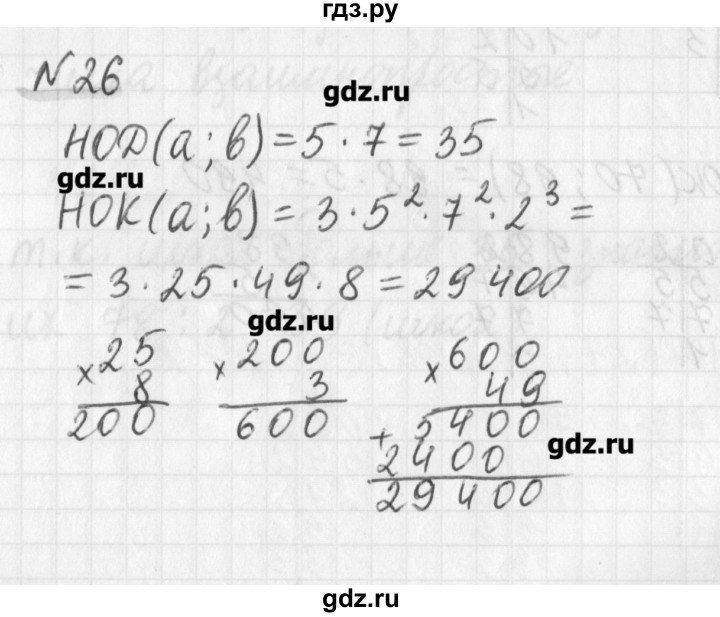 гдз.ру
№26
gdz.ru
НОД(a; b) = 5 · 7 = 35
gdz.ru
НОК(a; b) = 3 · 5² · 7² · 2³ =
= 3 · 25 · 49 · 8 = 29 400
gdz.ru
× 25
8
200
× 200
3
600
× 600
49
+ 5400
2400
29400
gdz.ru
gdz.ru